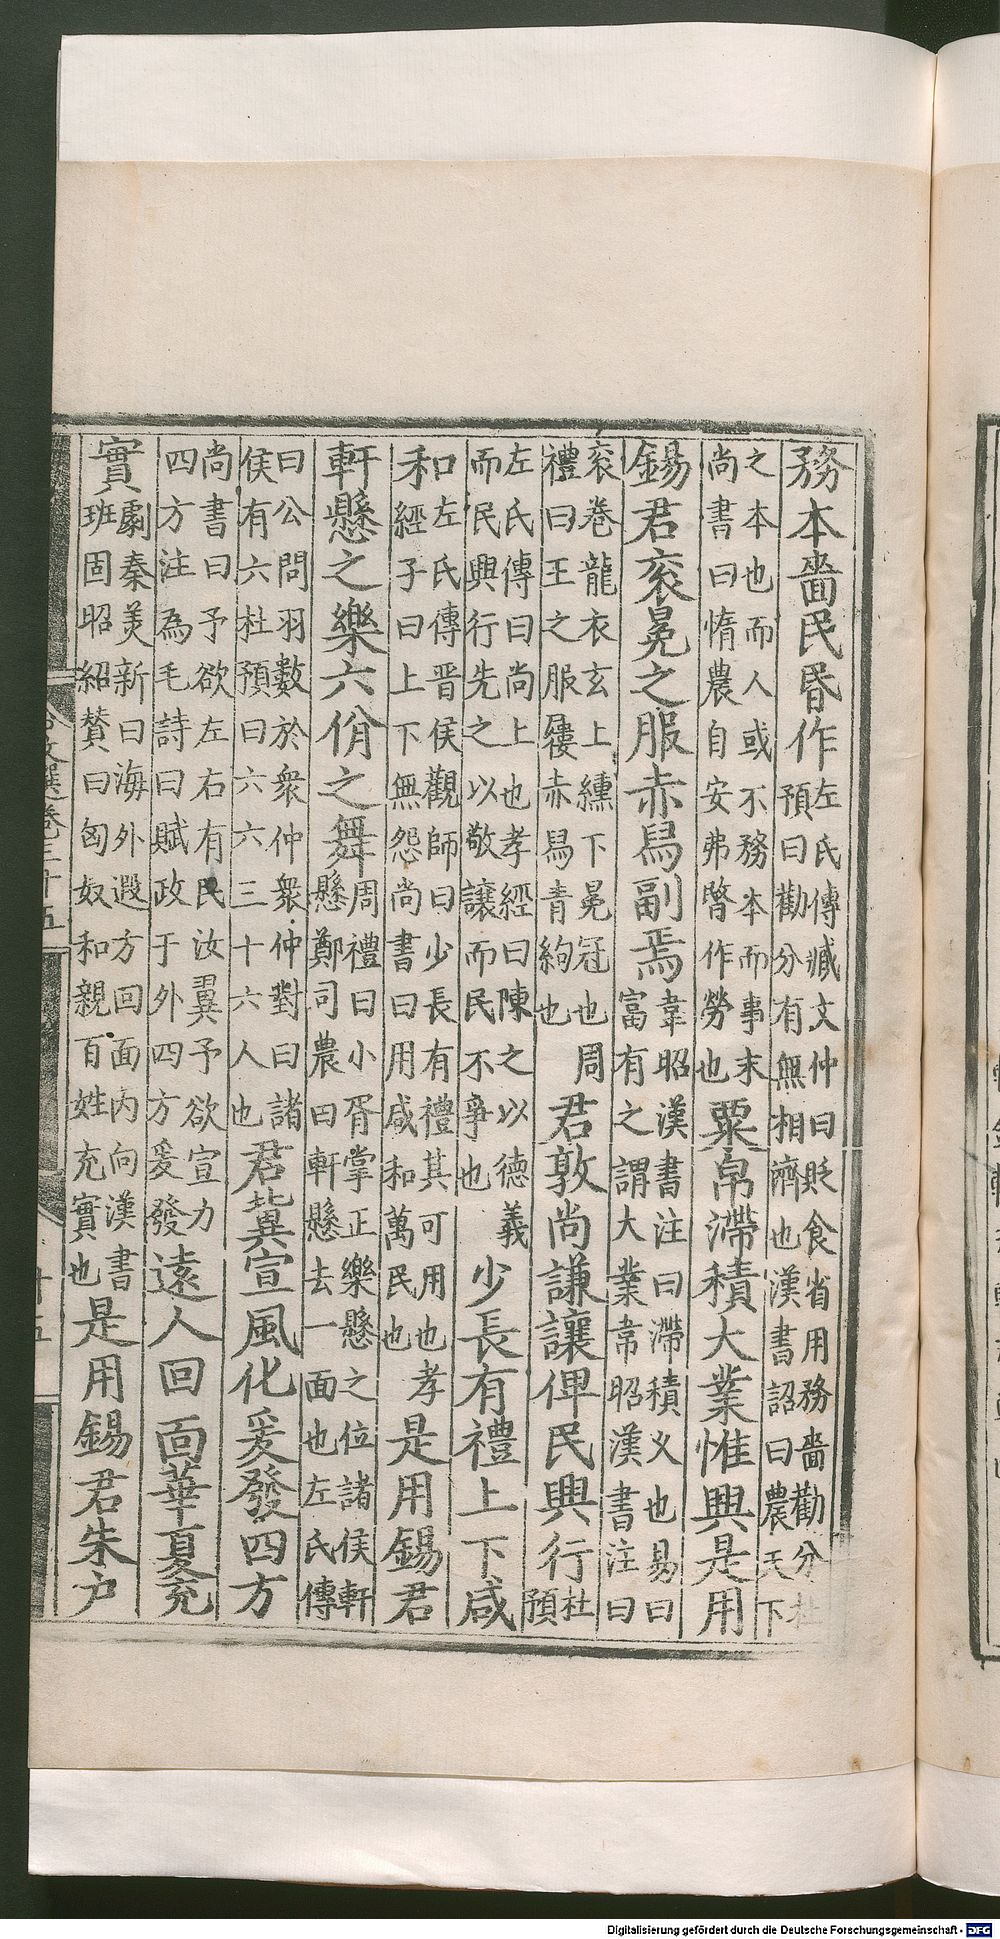 務本嗇民昬作左氏傳臧文仲曰貶食省用務嗇勸分杜預曰勸分有無相濟也漢書詔曰農天下
之本也而人或不務本而事末尚書曰惰農自安弗昬作勞也粟帛滯積大業惟興是用
錫君衮冕之服赤舄副焉韋昭漢書注曰滯積义也易曰富有之謂大業韋昭漢書注曰
衮卷龍衣玄上纁下冕冠也周禮曰王之服屨赤舄青絇也君敦尚謙讓俾民興行杜預
左氏傳曰尚上也孝經曰陳之以德義而民興行先之以敬讓而民不爭也少長有禮上下咸
和左氏傳晉侯觀師曰少長有禮其可用也孝經子曰上下無怨尚書曰用咸和萬民也是用錫君
軒懸之樂六佾之舞周禮曰小胥掌正樂懸之位諸侯軒懸鄭司農曰軒懸去一面也左氏傳
曰公問羽數於衆仲衆仲對曰諸侯有六杜預曰六六三十六人也君冀宣風化爰發四方
尚書曰予欲左右有民汝翼予欲宣力四方注為毛詩曰賦政于外四方爰發遠人回面華夏充
實劇秦美新曰海外遐方回面内向漢書班固昭紹賛曰匈奴和親百姓充實也是用錫君朱户
文選卷三十五
十五
Digitalisierung gefördert durch die Deutsche Forschungsgemeinschaft - DFG